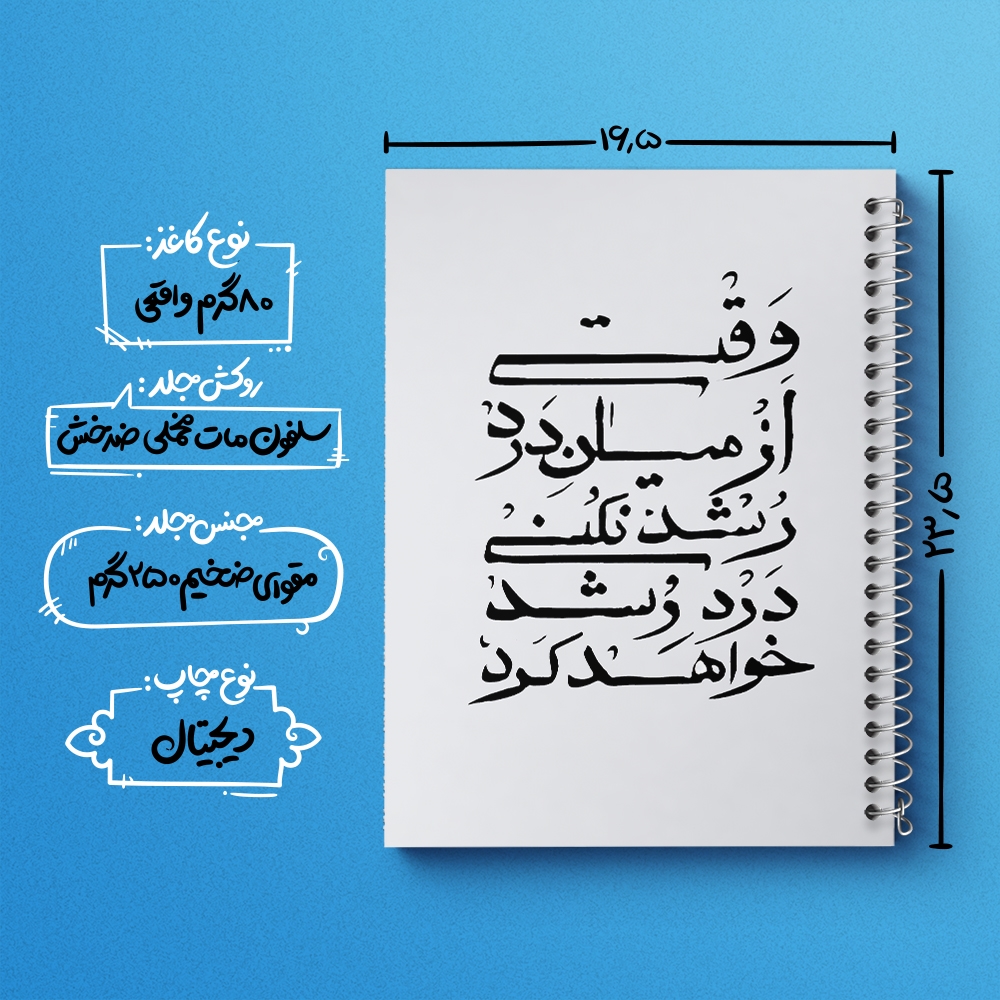 ۱۶,۵
۲۳,۵
وقتی
از میان درد
رشد نکنی
درد رشد
خواهد کرد
نوع کاغذ:
۸۰ گرم واقعی
روکش جلد:
سلفون مات مخملی ضدخش
جنس جلد:
مقوای ضخیم ۲۵۰ گرم
نوع چاپ:
دیجیتال